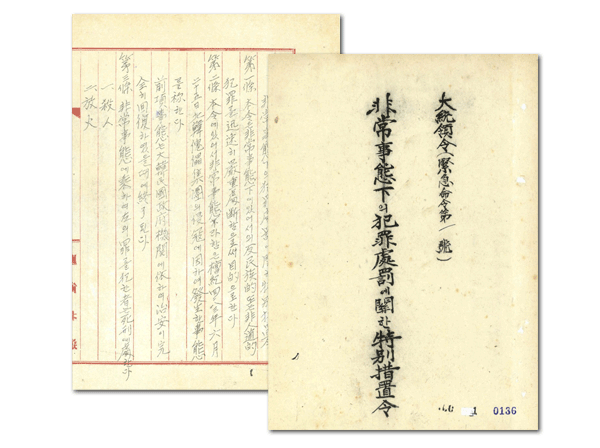 大統領令(緊急命令第一號)
非常事態下의犯罪處罰에關한特別措置令
1 0136
第一條 本令은非常事態下에있어서의反民族的또는非人道的
犯罪를迅速히嚴重處斷함으로써目的으로한다
第二條 本令에있어서非常事態라함은檀紀四二八三年六月
二十五日北韓傀儡集團의侵寇에因하여發生한事態
를稱한다
前項事態는大韓民國政府機關에依하여治安이完
全히回復되었을때에終了된다
第三條 非常事態에乘하여左의罪를犯한者는死刑에處한다
一、殺人
二、放火